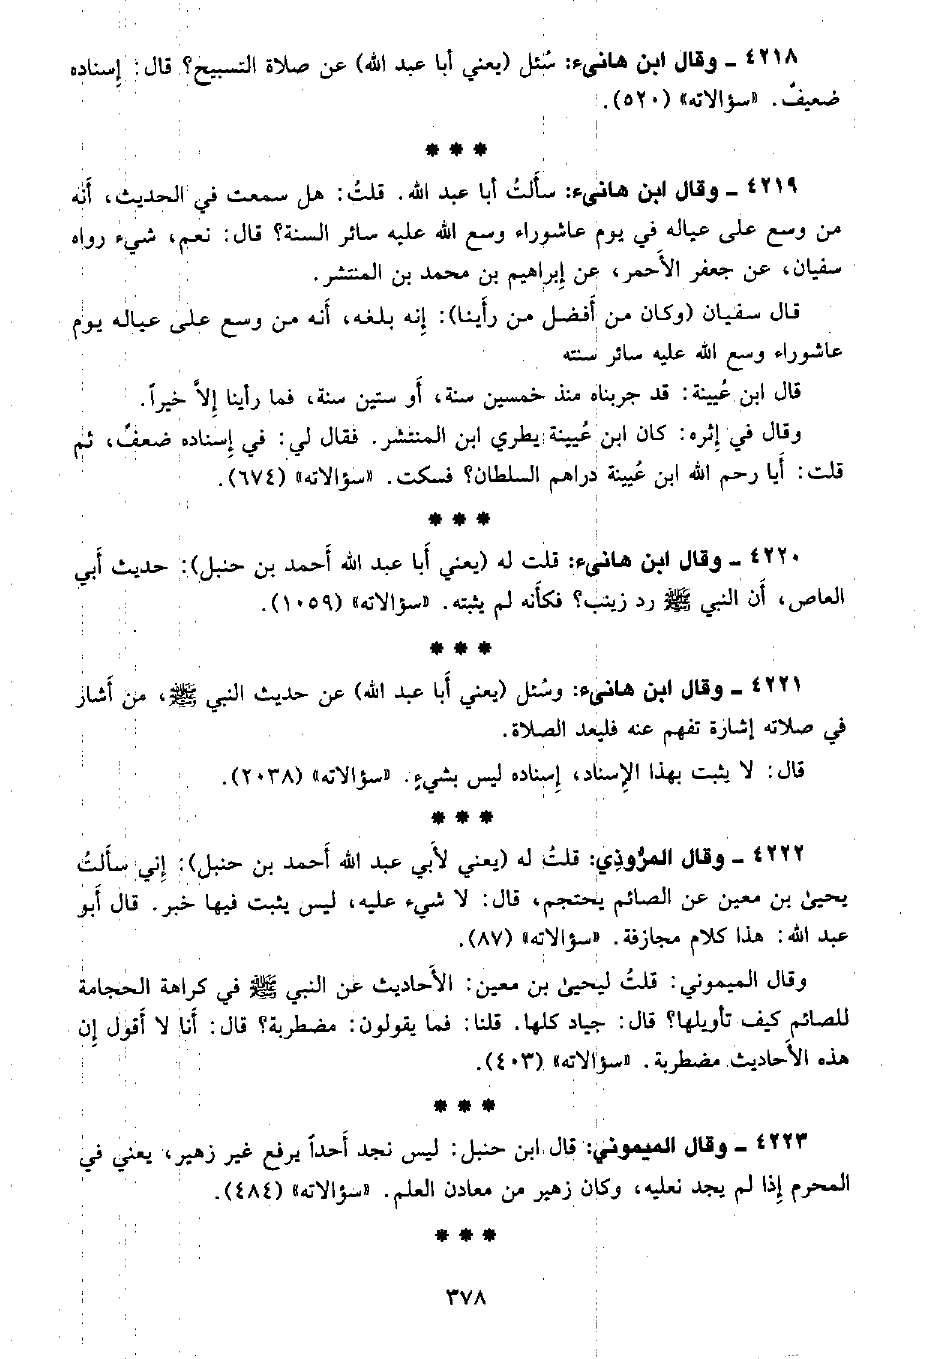 ٤٢١٨ ـ وقال ابن هانىء: سُئل (يعني أبا عبد الله) عن صلاة التسبيح؟ قال: إسناده
ضعيفٌ. «سؤالاته» (٥٢٠).
* * *
٤٢١٩ ـ وقال ابن هانىء: سألتُ أبا عبد الله. قلتُ: هل سمعت في الحديث، أنه
من وسع على عياله في يوم عاشوراء وسع الله عليه سائر السنة؟ قال: نعم، شيء رواه
سفيان، عن جعفر الأحمر، عن إبراهيم بن محمد بن المنتشر.
قال سفيان (وكان من أفضل من رأينا): إنه بلغه، أنه من وسع على عياله يوم
عاشوراء وسع الله عليه سائر سنته
قال ابن عُيينة: قد جربناه منذ خمسين سنة، أو ستين سنة، فما رأينا إلاَّ خيراً.
وقال في إثره: كان ابن عُيينة يطري ابن المنتشر. فقال لي: في إسناده ضعفٌ، ثم
قلت: أيا رحم الله ابن عُيينة دراهم السلطان؟ فسكت. «سؤالاته» (٦٧٤).
* * *
٤٢٢٠ ـ وقال ابن هانىء: قلت له (يعني أبا عبد الله أحمد بن حنبل): حديث أبي
العاص، أن النبي ﷺ رد زينب؟ فكأنه لم يثبته. «سؤالاته» (١٠٥٩).
* * *
٤٢٢١ ـ وقال ابن هانىء: وسُئل (يعني أبا عبد الله) عن حديث النبي ﷺ، من أشار
في صلاته إشارة تفهم عنه فليعد الصلاة.
قال: لا يثبت بهذا الإسناد، إسناده ليس بشيءٍ. «سؤالاته» (٢٠٣٨).
* * *
٤٢٢٢ ـ وقال المرُّوذِي: قلتُ له (يعني لأبي عبد الله أحمد بن حنبل): إني سألتُ
يحيىٰ بن معين عن الصائم يحتجم، قال: لا شيء عليه، ليس يثبت فيها خبر. قال أبو
عبد الله: هذا كلام مجازفة. «سؤالاته» (٨٧).
وقال الميموني: قلتُ ليحيىٰ بن معين: الأحاديث عن النبي ﷺ في كراهة الحجامة
للصائم كيف تأويلها؟ قال: جياد كلها. قلنا: فما يقولون: مضطربة؟ قال: أنا لا أقول إن
هذه الأحاديث مضطربة. «سؤالاته» (٤٠٣).
* * *
٤٢٢٣ ـ وقال الميموني: قال ابن حنبل: ليس نجد أحداً يرفع غير زهير، يعني في
المحرم إذا لم يجد نعليه، وكان زهير من معادن العلم. «سؤالاته» (٤٨٤).
* * *
٣٧٨